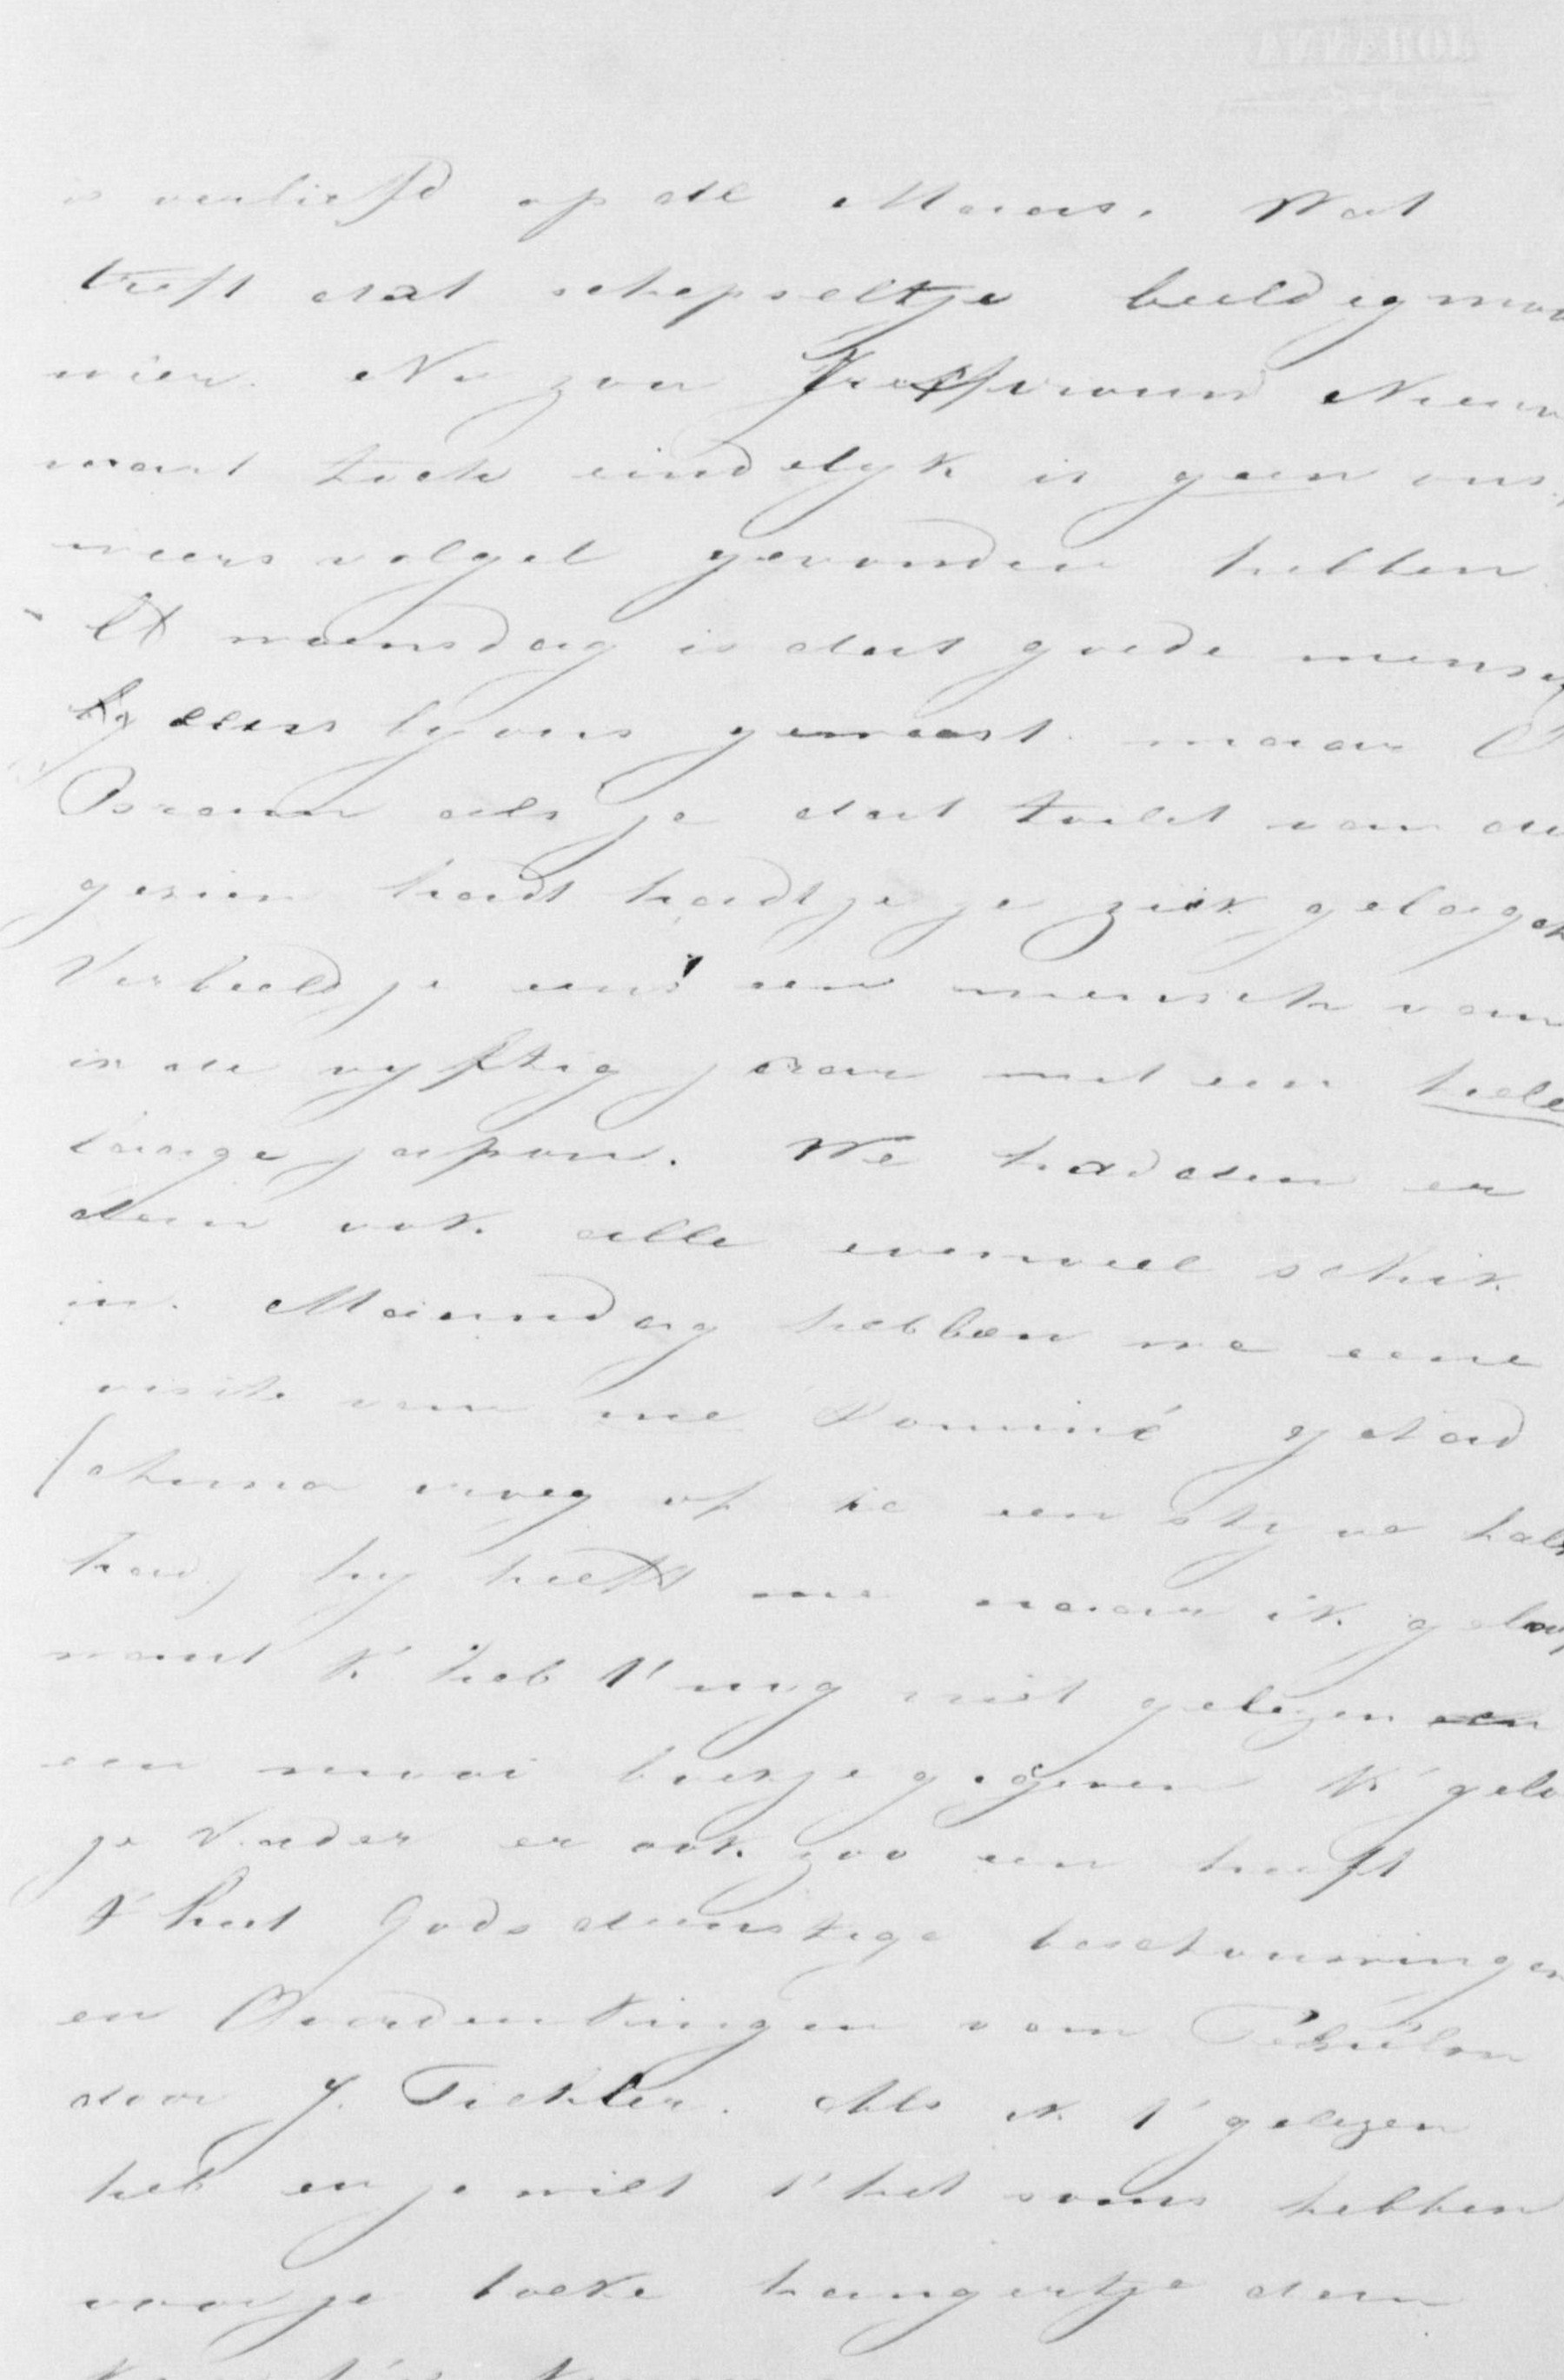 is verliefd op de Maas. Wat
treft dat schepseltje beeldig mooi
weer. Nu zou Juffrouw Nieuw
waart toch eindelyk is geen ons,
weers volgel gevonden hebben
Ll woensdag is dat goede mensch
by ons geweest maar O
Bram als je dat toilet van der
gezien hadt hadt je je ziek gelagch
Verbeeld je eens! een mensch van
in de vyftig jaar met een hele
lange japon. We hadden er
dan ook alle evenveel schik
in. Maandag hebben we eene
visite van me Dominé gehad
vroeg of ik een styve hals
had, hy heeft me naar ik geloof
want k' heb t' nog niet gelezen een
een mooi boekje gegeven k' gelo
je Vader er ook zoo een heeft
t' heet Godsdienstige beschouwingen
en Overdenkingen van
door J. Tichler. Als ik t' gelezen
heb en je wilt t' het soms hebben
voor je boeke hangertje dan